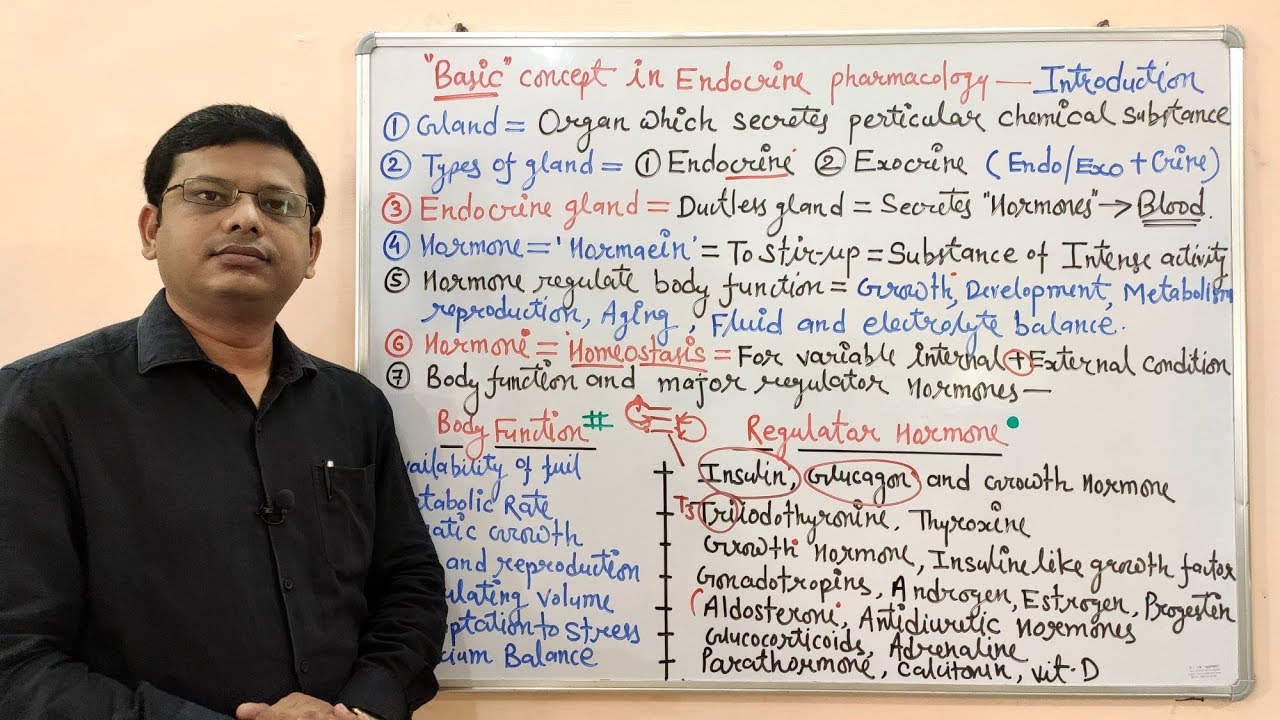 "Basic" concept in Endocrine pharmacology — Introduction
① Gland = Organ which secretes perticular chemical substance
② Types of gland = ① Endocrine ② Exocrine (Endo/Exo + Crine)
③ Endocrine gland = Ductless gland = Secretes "Hormones" → Blood.
④ Hormone = 'Hormaein' = To stir-up = Substance of Intense activity
⑤ Hormone regulate body function = Growth, Development, Metabolism
reproduction, Aging, Fluid and electrolyte balance.
⑥ Hormone = Homeostasis = For variable internal + External condition
⑦ Body function and major regulator Hormones —
Body Function # Regulatar Hormone
vailability of fuil Insulin, Glucagon and Growth Hormone
tabolic Rate T3 Triiodothyronine, Thyroxine
atic Growth Growth Hormone, Insuline like growth factor
and reproduction Gonadotropins, Androgen, Estrogen, Progestin
ulating volume Aldosterone, Antidiuretic Hormones
ptation to Stress Glucocorticoids, Adrenaline
cium Balance Parathormone, Calcitonin, vit. D